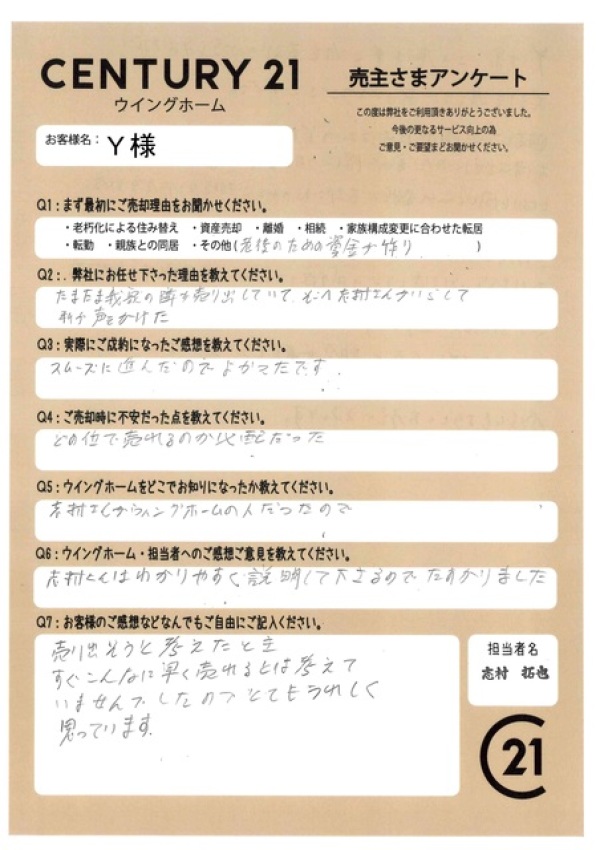 CENTURY 21
ウイングホーム
売主さまアンケート
この度は弊社をご利用頂きありがとうございました。
今後の更なるサービス向上の為
ご意見・ご要望までお聞かせください。
お客様名： Y様
Q1：まず最初にご売却理由をお聞かせください。
・老朽化による住み替え ・資産売却 ・離婚 ・相続 ・家族構成変更に合わせた転居
・転勤 ・親族との同居 ・その他(老後のための資金が作り )
Q2：．弊社にお任せ下さった理由を教えてください。
たまたま我家の隣が売り出していて そこへ志村さんがいらして
声をかけた
Q3：実際にご成約になったご感想を教えてください。
スムーズに進んだのでよかったです.
Q4：ご売却時に不安だった点を教えてください。
どの位で売れるのか心配だった
Q5：ウイングホームをどこでお知りになったか教えてください。
志村さんがウイングホームの人だったので
Q6：ウイングホーム・担当者へのご感想ご意見を教えてください。
志村さんはわかりやすく説明して下さるのでたすかりました
Q7：お客様のご感想などなんでもご自由にご記入ください。
売り出そうと考えたと立
すぐこんなに早く売れるとは考えて
いませんでしたのでとてもうれしく
思っています.
担当者名
志村 拓也
21